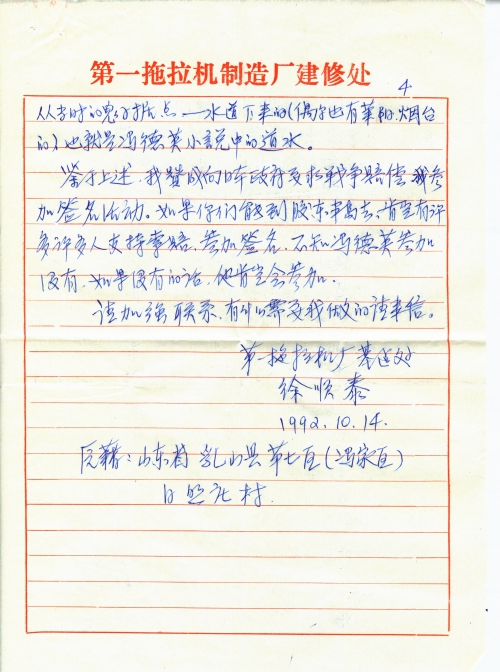 第一拖拉机制造厂建修处
4
从当时的鬼子据点——水道下来的(偶尔也有莱阳、烟台
的)也就是冯德英小説中的道水。
鉴于上述,我贊成向日本政府要求戦争賠偿 参
加签名活动。如果你们能到胶东半岛去,肯定有许
多许多人支持索賠,参加签名,不知冯德英参加
没有,如果没有的话,他肯定会参加。
请加强联系,有什么需要我做的请来信。
第一拖拉机厂基建处
徐顺泰
1992.10.14.
原籍:山东省乳山县第七区(冯家区)
日照庄村